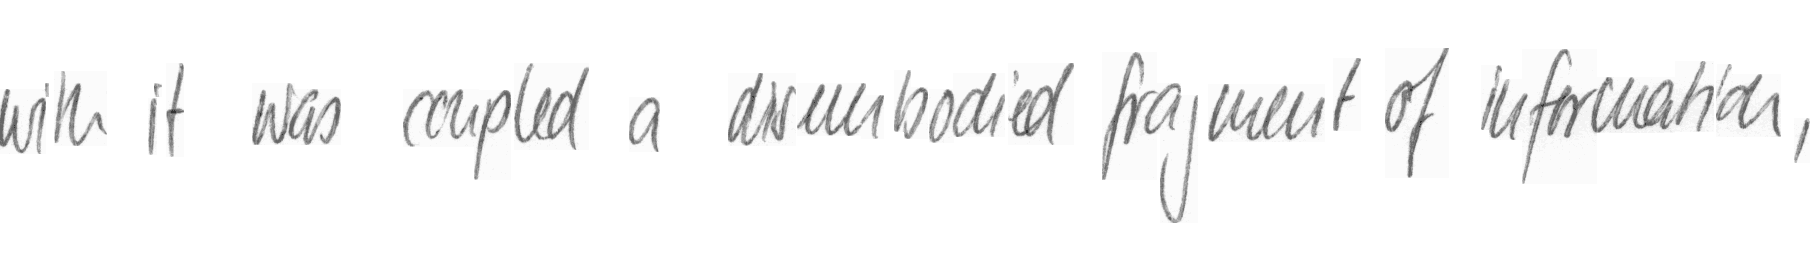 with it was coupled a disembodied fragment of information,